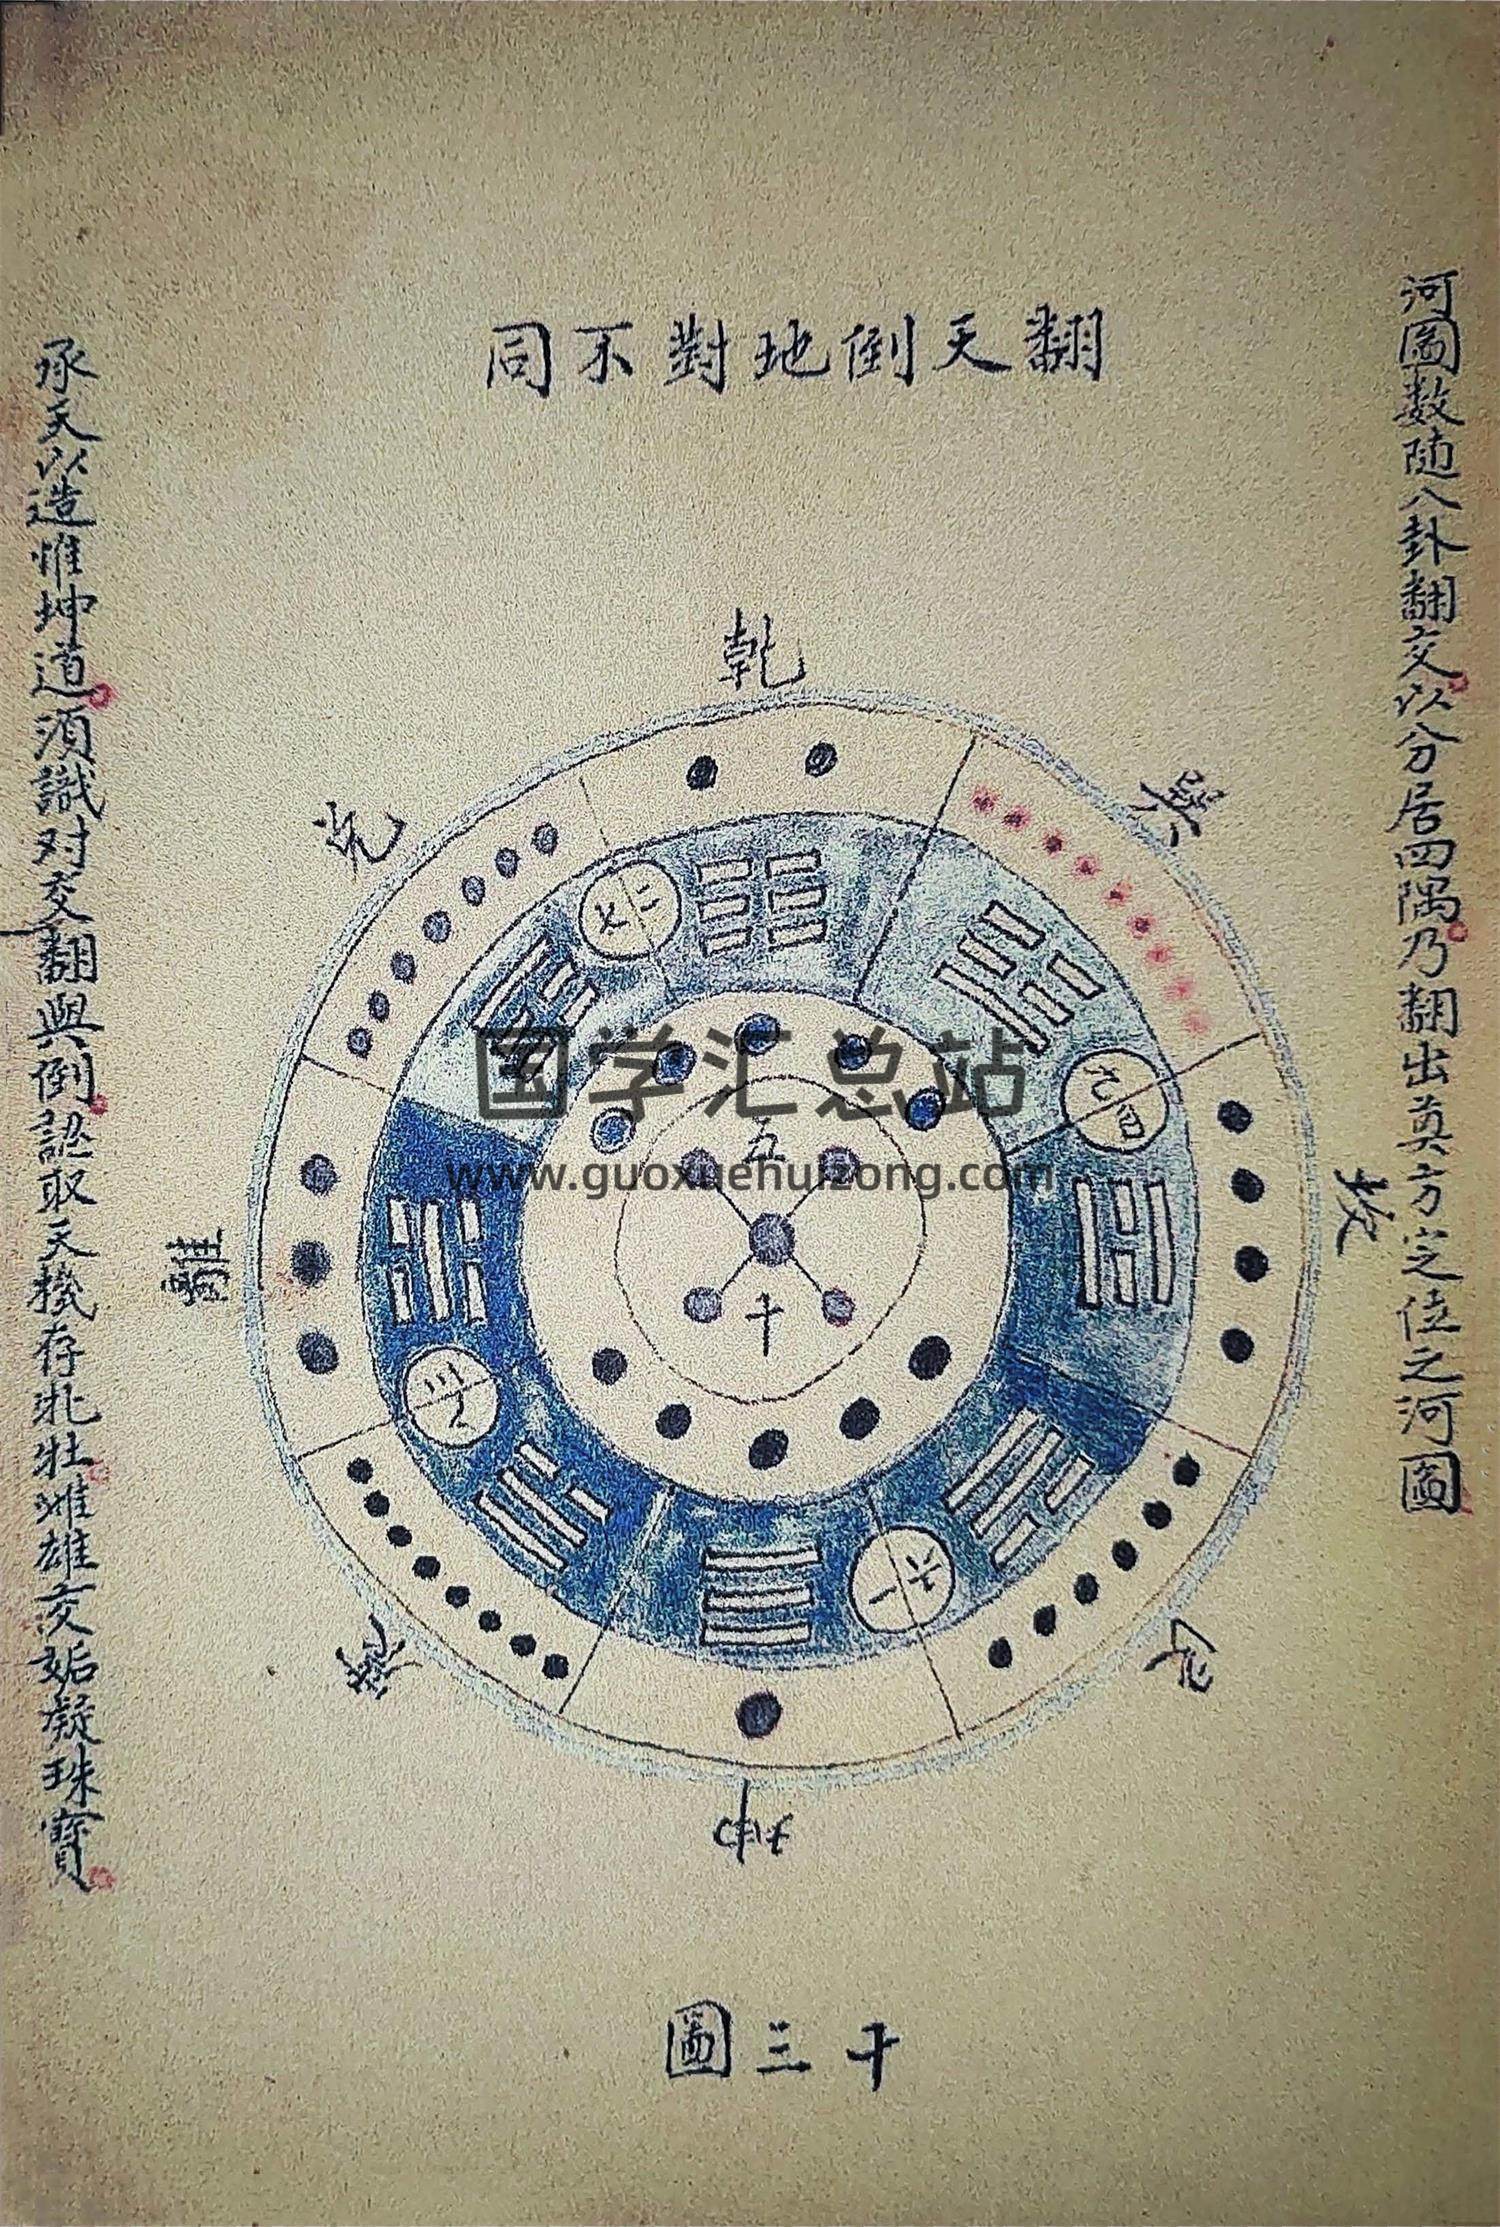 翻天倒地對不同
河圖數随八卦翻交以分居四隅乃翻出奠方定位之河圖
乾
兌
巽
離
坎
震
艮
坤
七二
九四
三八
六一
五
十
国学汇总站
www.guoxuehuizong.com
承天以造惟坤道須識对交翻與倒認取天機存牝牡雌雄交姤凝珠寶
十三圖